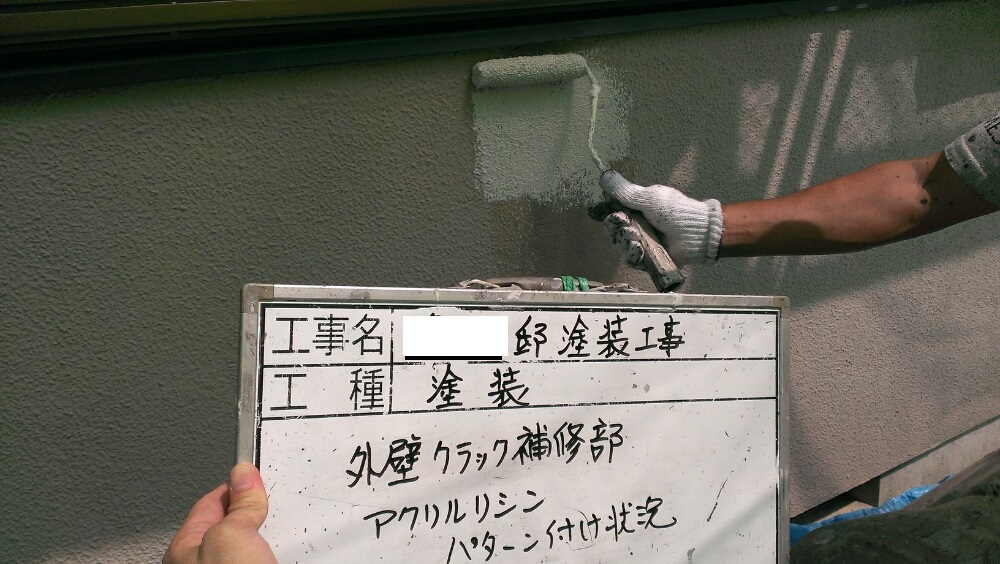 工事名 邸塗装工事
工種 塗装
外壁クラック補修部
アクリルリシン
パターン付け状況